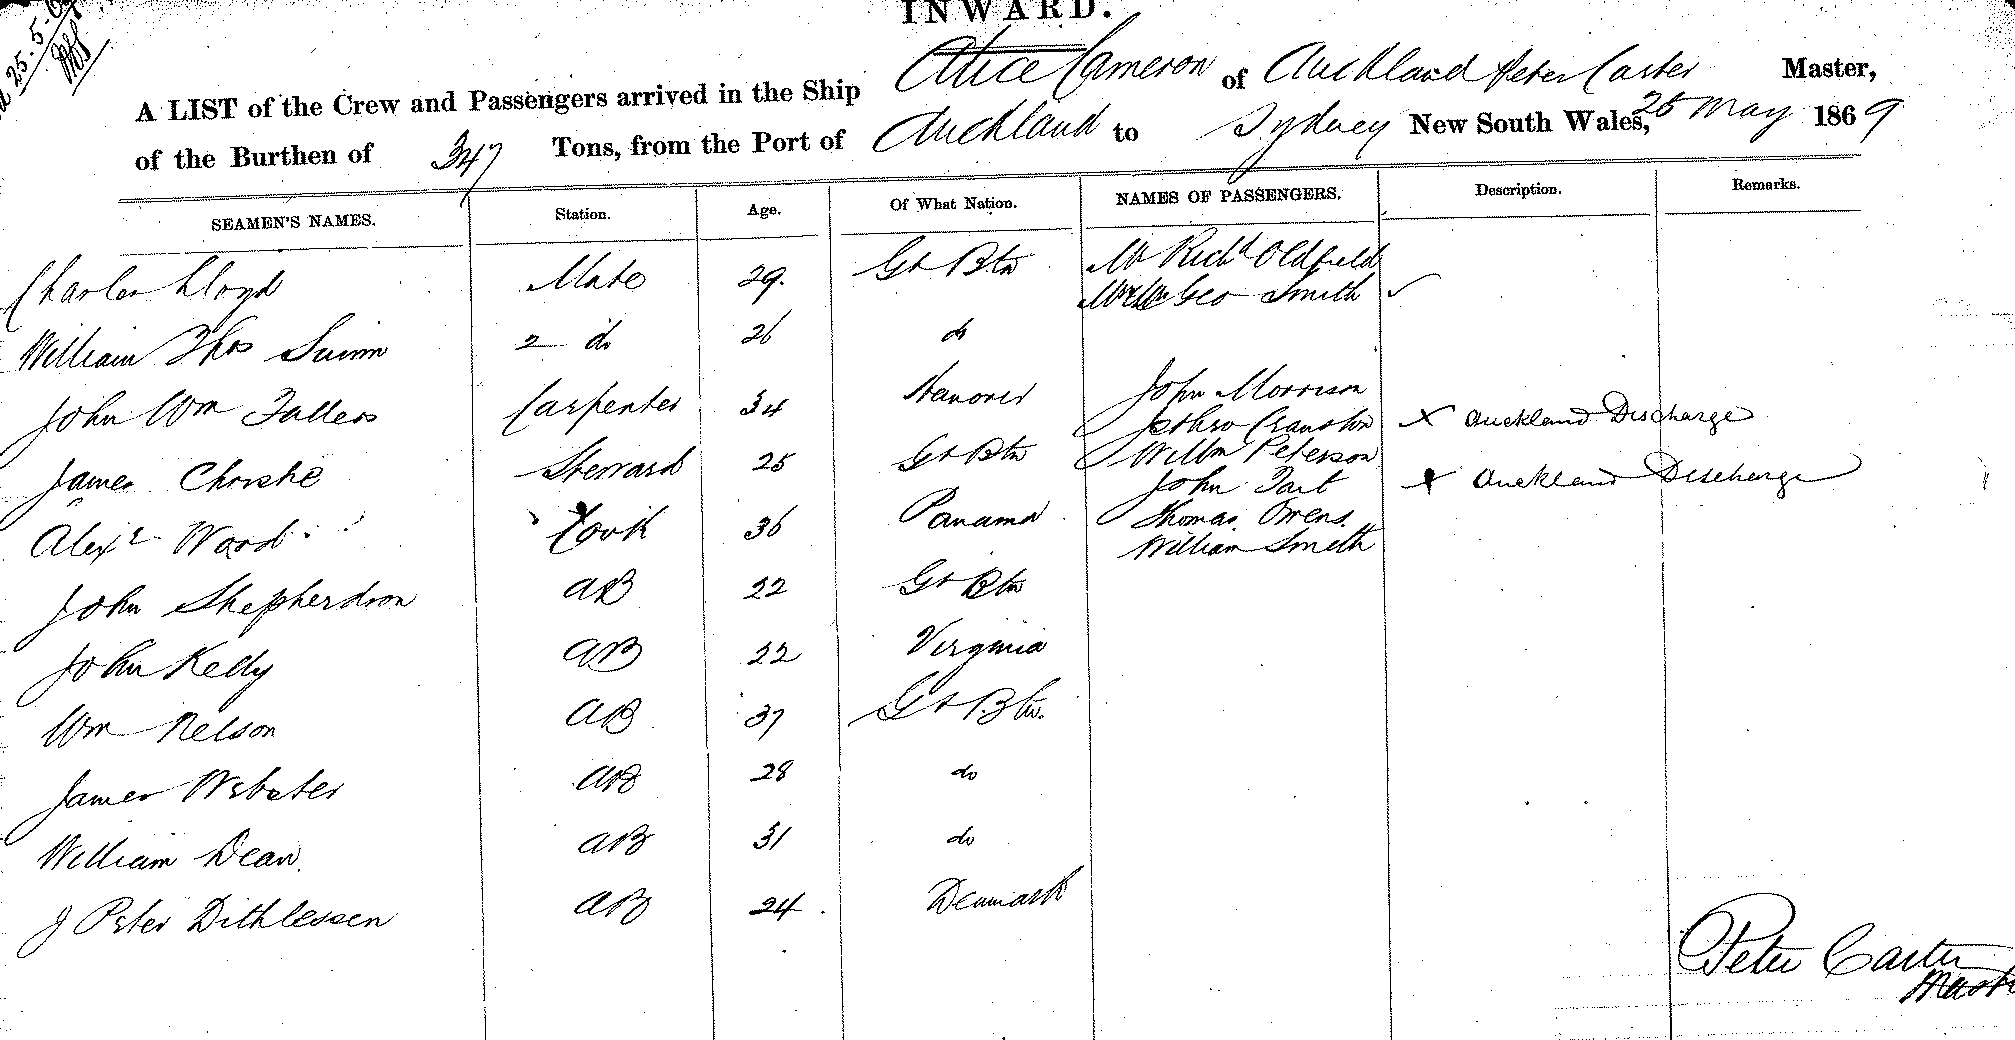 25.5.69
INWARD.
A LIST of the Crew and Passengers arrived in the Ship Alice Cameron of Auckland Peter Carter Master,
of the Burthen of 347 Tons, from the Port of Auckland to Sydney New South Wales, 25 May 1869
SEAMEN'S NAMES. Station. Age. Of What Nation. NAMES OF PASSENGERS. Description. Remarks.
Charles Lloyd Mate 29. Gt Btn Mr Richd Oldfield
Geo Smith ✓
William Thos 2 do 26 do
John Wm Carpenter 34 Hanover John Morrison
Jethro Cranston x Auckland Discharge
James Steward 25 Gt Btn Willm Peterson
John Tait x Auckland Discharge
Alexr Ward Cook 36 Panama Thomas Owens
William Smith
John Shepherdson AB 22 Gt Btn
John Kelly AB 22 Virginia
Wm Nelson AB 37 Gt Btn.
James Webster AB 28 do
William Dean. AB 31 do
J Peter Dithlessen AB 24. Denmark
Peter Carter
Master